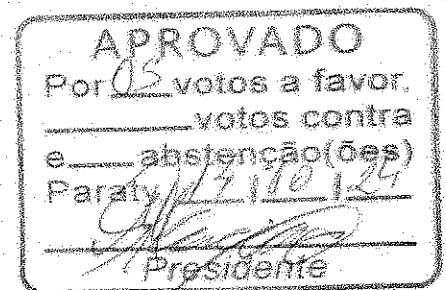 APROVADO
Por 05 votos a favor,
votos contra
e abstenção(ões)
Paraty, / 10 / 24
Presidente